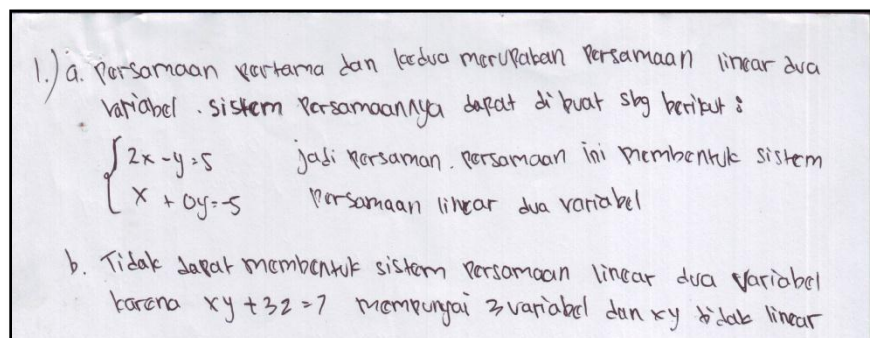 1.) a. Persamaan pertama dan kedua merupakan Persamaan linear dua
variabel . sistem Persamaannya dapat dibuat sbg berikut :
2x - y = 5 jadi persaman . persamaan ini membentuk sistem
x + 0y = -5 Persamaan linear dua variabel
b. Tidak dapat membentuk sistem Persamaan linear dua variabel
karena xy + 3z = 7 mempunyai 3 variabel dan xy tidak linear